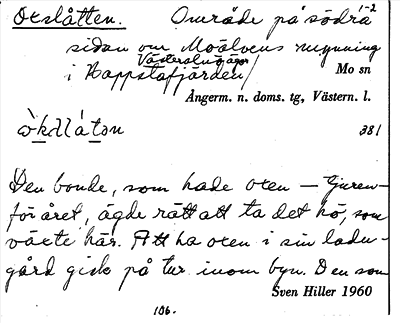 Oxslåtten. Område på södra 1-2
sidan om Moälvens mynning
i Happstafjärden/ Västeralnsjön
Mo sn
Ångerm. n. doms. tg, Västern. l.
381
Den bonde, som hade oxen – tjuren –
för året, ägde rätt att ta det hö, som
växte här. Att ha oxen i sin ladu-
gård gick på tur inom byn. Den som
Sven Hiller 1960
106.